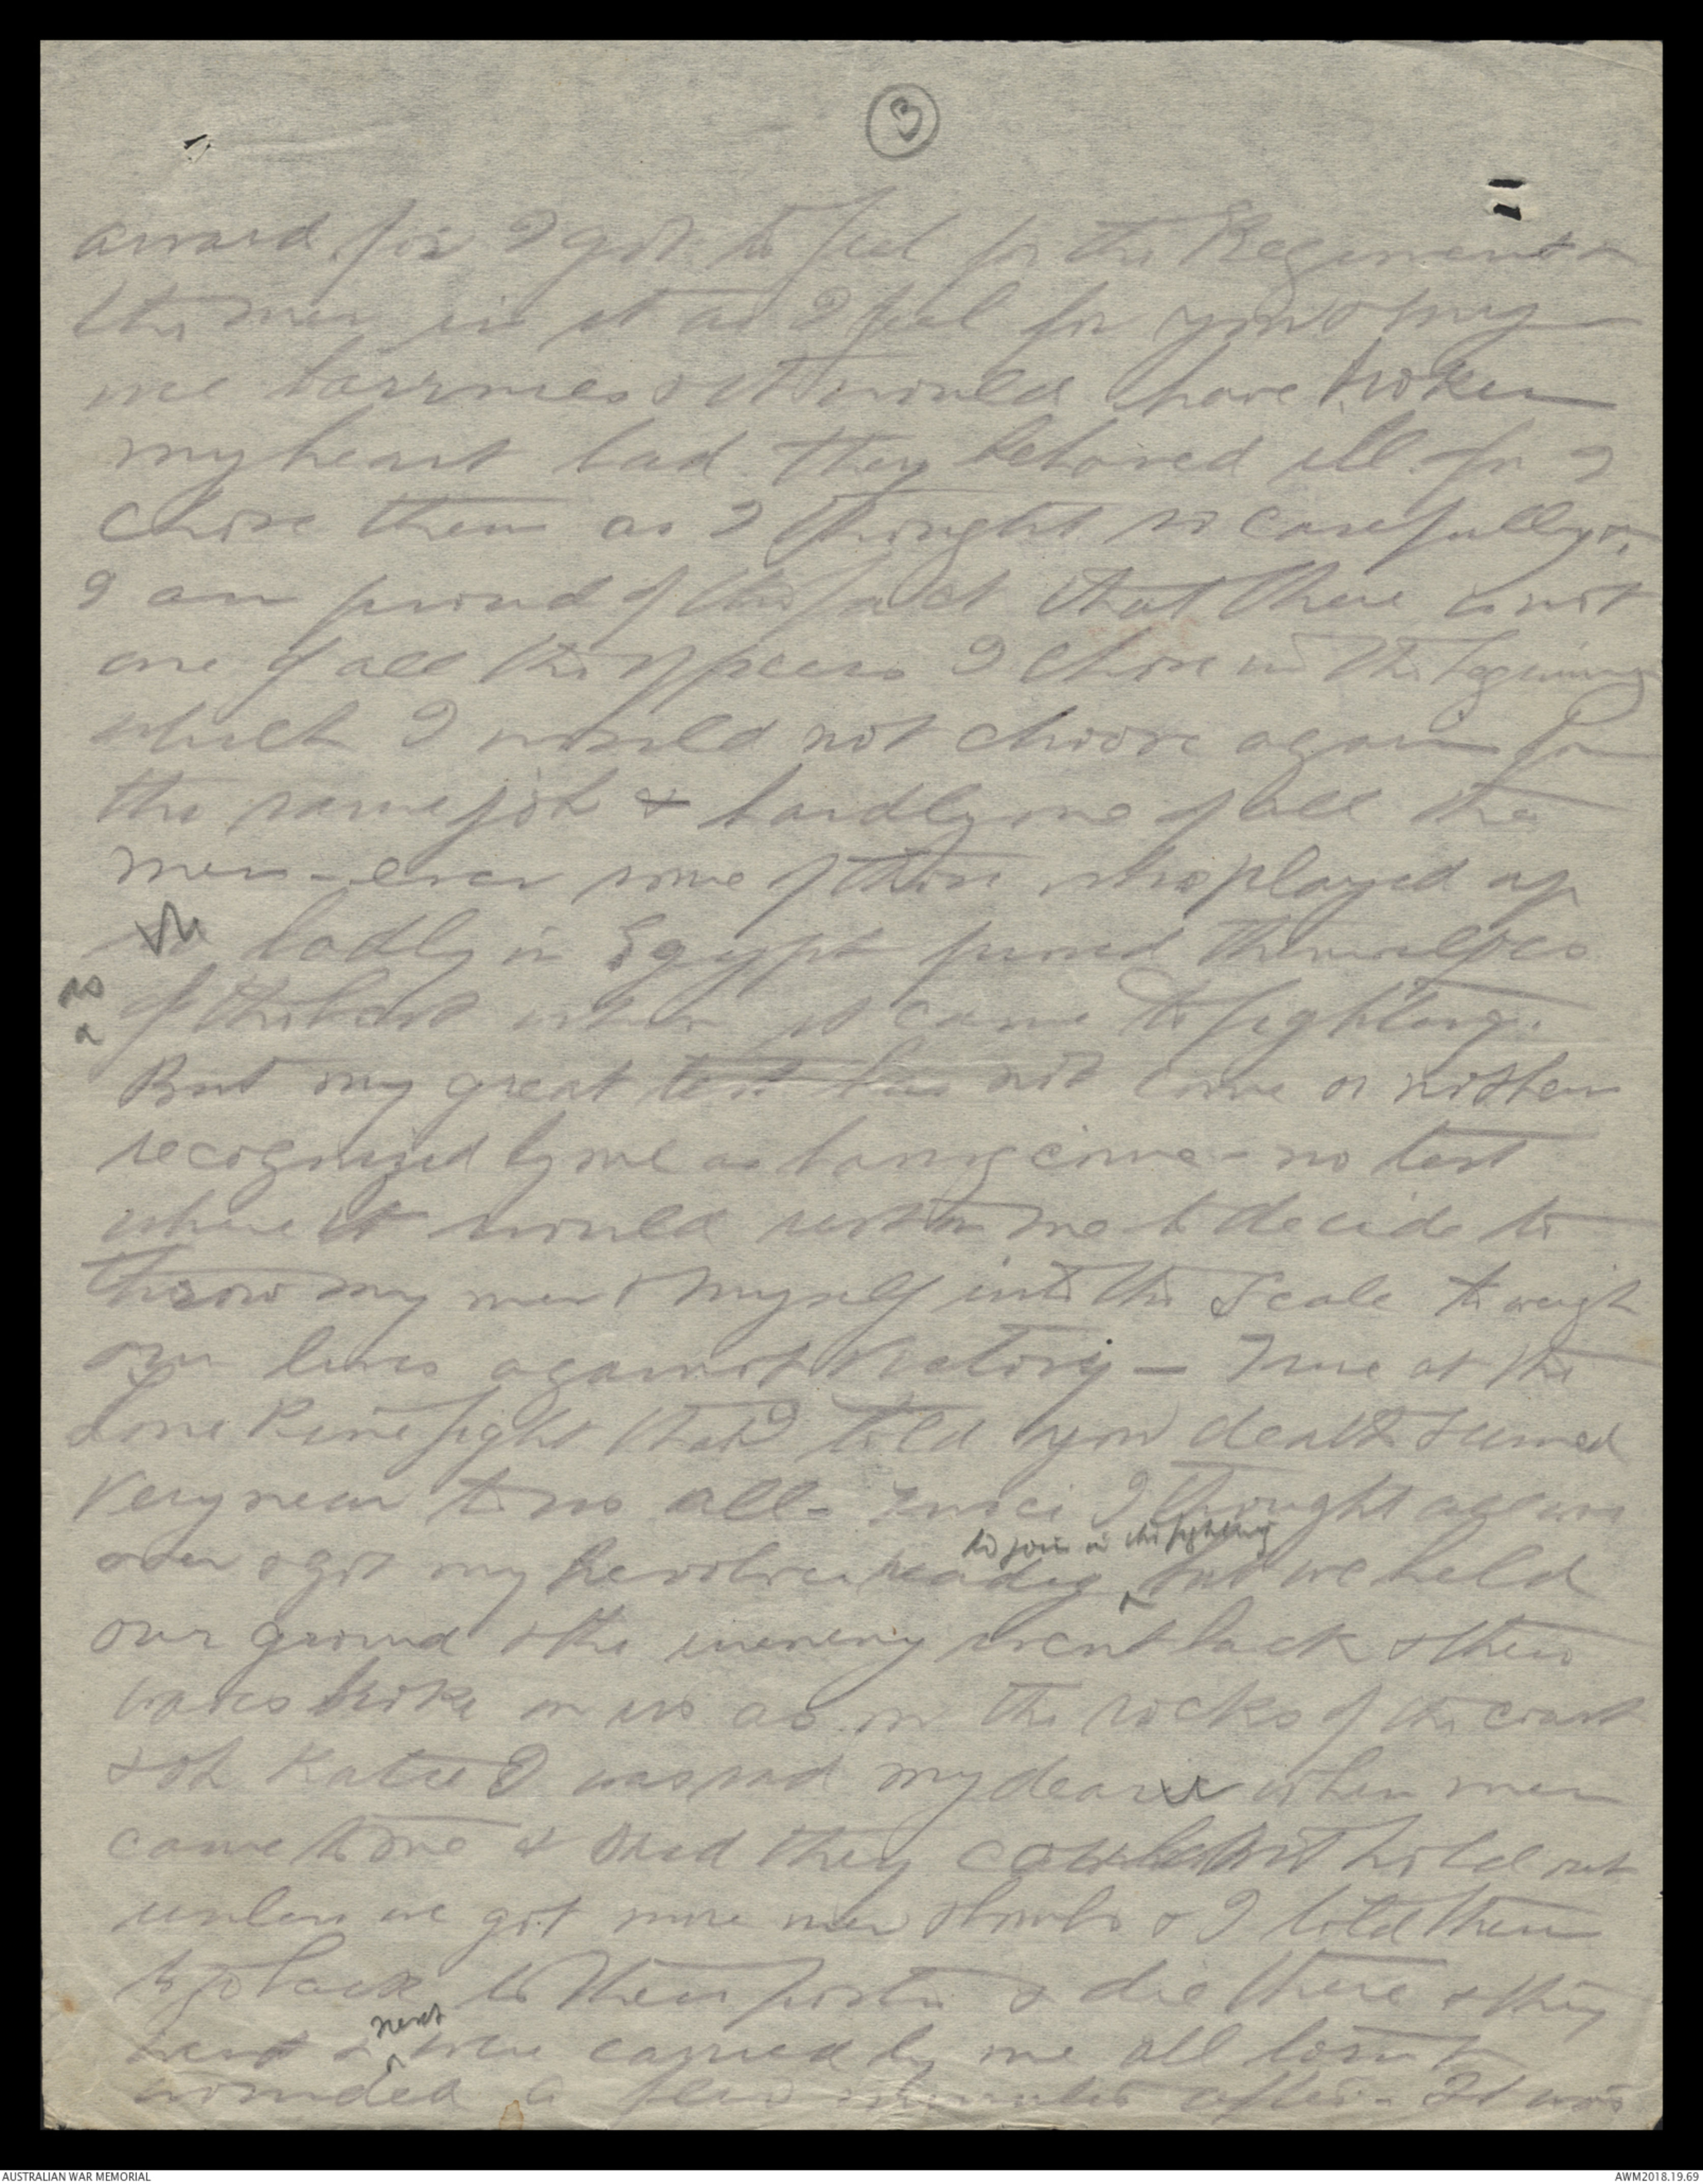 3
award for I got to feel for the Regiment &
the men in it as I feel for you & my
wee bairnies & it would have broken
my heart had they behaved ill for I
chose them as I thought so carefully &
I am proud of the fact that there is not
one of all the officers I chose in the beginning
which I would not choose again for
the same job & hardly one of all the
men - even some of those who played up
so badly in Egypt proved themselves
as of the best when it came to fighting.
But my great test has not come or not been
recognized by me as having come - no test
where it would rest on me to decide to
throw my men & myself into the scale to weigh
our lives against Victory - True at the
Lone Pine fight that I told you death seemed
very near to us all - Twice I thought all was
to join in the fighting
over & got my revolver ready but we held
our ground & the enemy went back & their
waves broke on us as on the rocks of the coast
& oh Katie I was sad my dear when men
came to me & said they could not hold out
unless we got more men & bombs & I told them
to go back to their posts & die there & they
next
went & were carried by me all torn &
wounded a few minutes after - It was
AUSTRALIAN WAR MEMORIAL
AWM2018.19.69